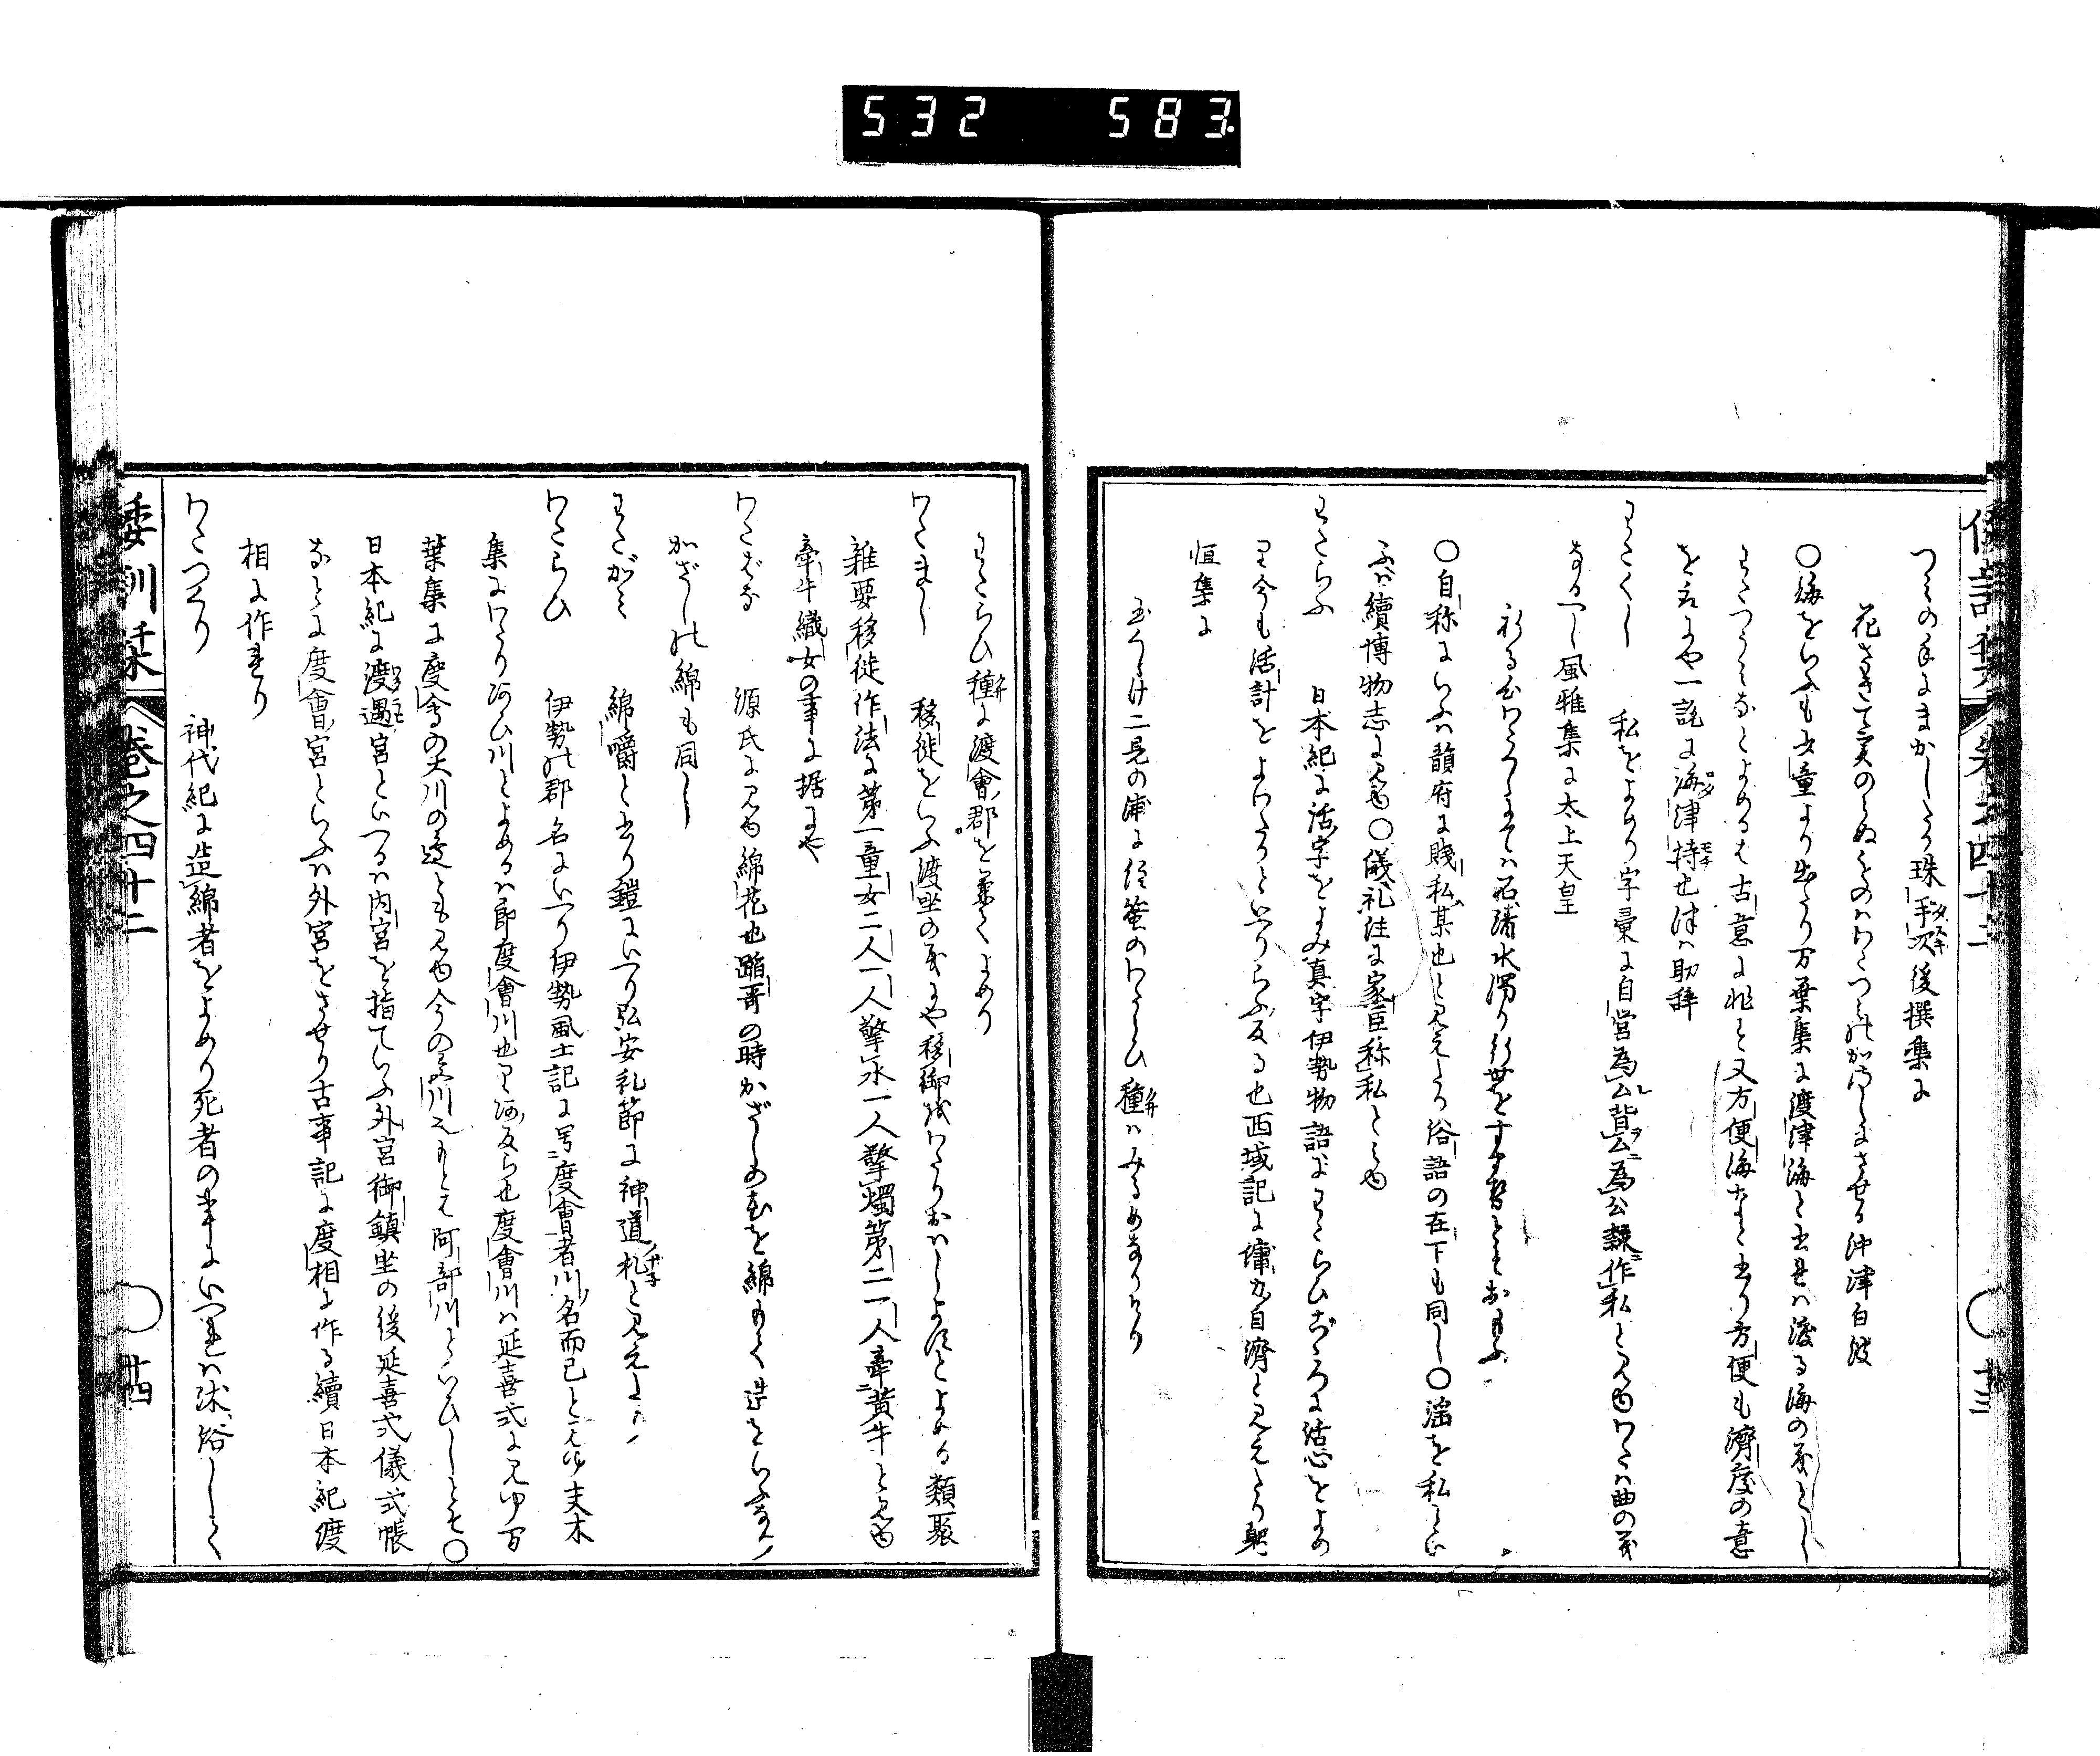 532 583
つみの手にまかしたる珠手次後撰集に
花さきて実のらぬものはわたつ海のかさしにさせる沖津白波
○海をいふも女童より出たり万葉集に渡津海と書るは渡る海の義とし
わたつうみなとよめるは古意に非す又方便海なと書り方便も済度の意
を言にや一説に海津持也津は助辞
わたくし 私をよめり字彙に自営為ム背ム為公隷作私と見ゆわたは曲の義
なるへし風雅集に太上天皇
祈る心わたくしにては石清水濁り行世をすませとそおもふ
○自称にいふは韻府に賎私某也と見えたる俗語の在下も同し○淫を私とい
ふは続博物志に見ゆ○儀礼注に家臣称私とみゆ
わたらふ 日本紀に活字をよみ真字伊勢物語にわたらひこゝろに活心をよめ
り今も活計をよわたりといへりらふ反る也西域記に傭力自済と見えたり躬
恒集に
玉くしけ二見の浦に住蜑のわたらひ種はみるめなりけり
倭訓栞 巻之四十二 ○十三
わたらひ種に渡会郡を兼てよめり
わたまし 移徙をいふ渡坐の義にや移御成わたりおはしよはすとよめる類聚
雑要移徙作法に第一童女二人一人擎水一人擎燭第二一人牽黄牛と見ゆ
牽牛織女の事に据にや
わたばな 源氏に見ゆ綿花也踏哥の時かざしの花を綿もて造をいふなり
かざしの綿も同し
わたがみ 綿嚼と書り鎧にいへり弘安礼節に神道札と見えたり
わたらひ 伊勢の郡名にいへり伊勢風土記に号度会者川名而已と見ゆ夫木
集にわたりあひ川とよめるは即度会川也りあ反ら也度会川は延喜式に見ゆ万
葉集に度会の大川の辺とも見ゆ今の宮川也もとは阿部川といひしとそ○
日本紀に渡遇宮といへるは内宮を指ていふ外宮御鎮坐の後延喜式儀式帳
なとに度会宮といふは外宮をさせり古事記に度相に作る続日本紀渡
相に作れり
わたつくり 神代紀に造綿者をよめり死者の事にいへれは沐浴しして
倭訓栞 巻之四十二 ○十四